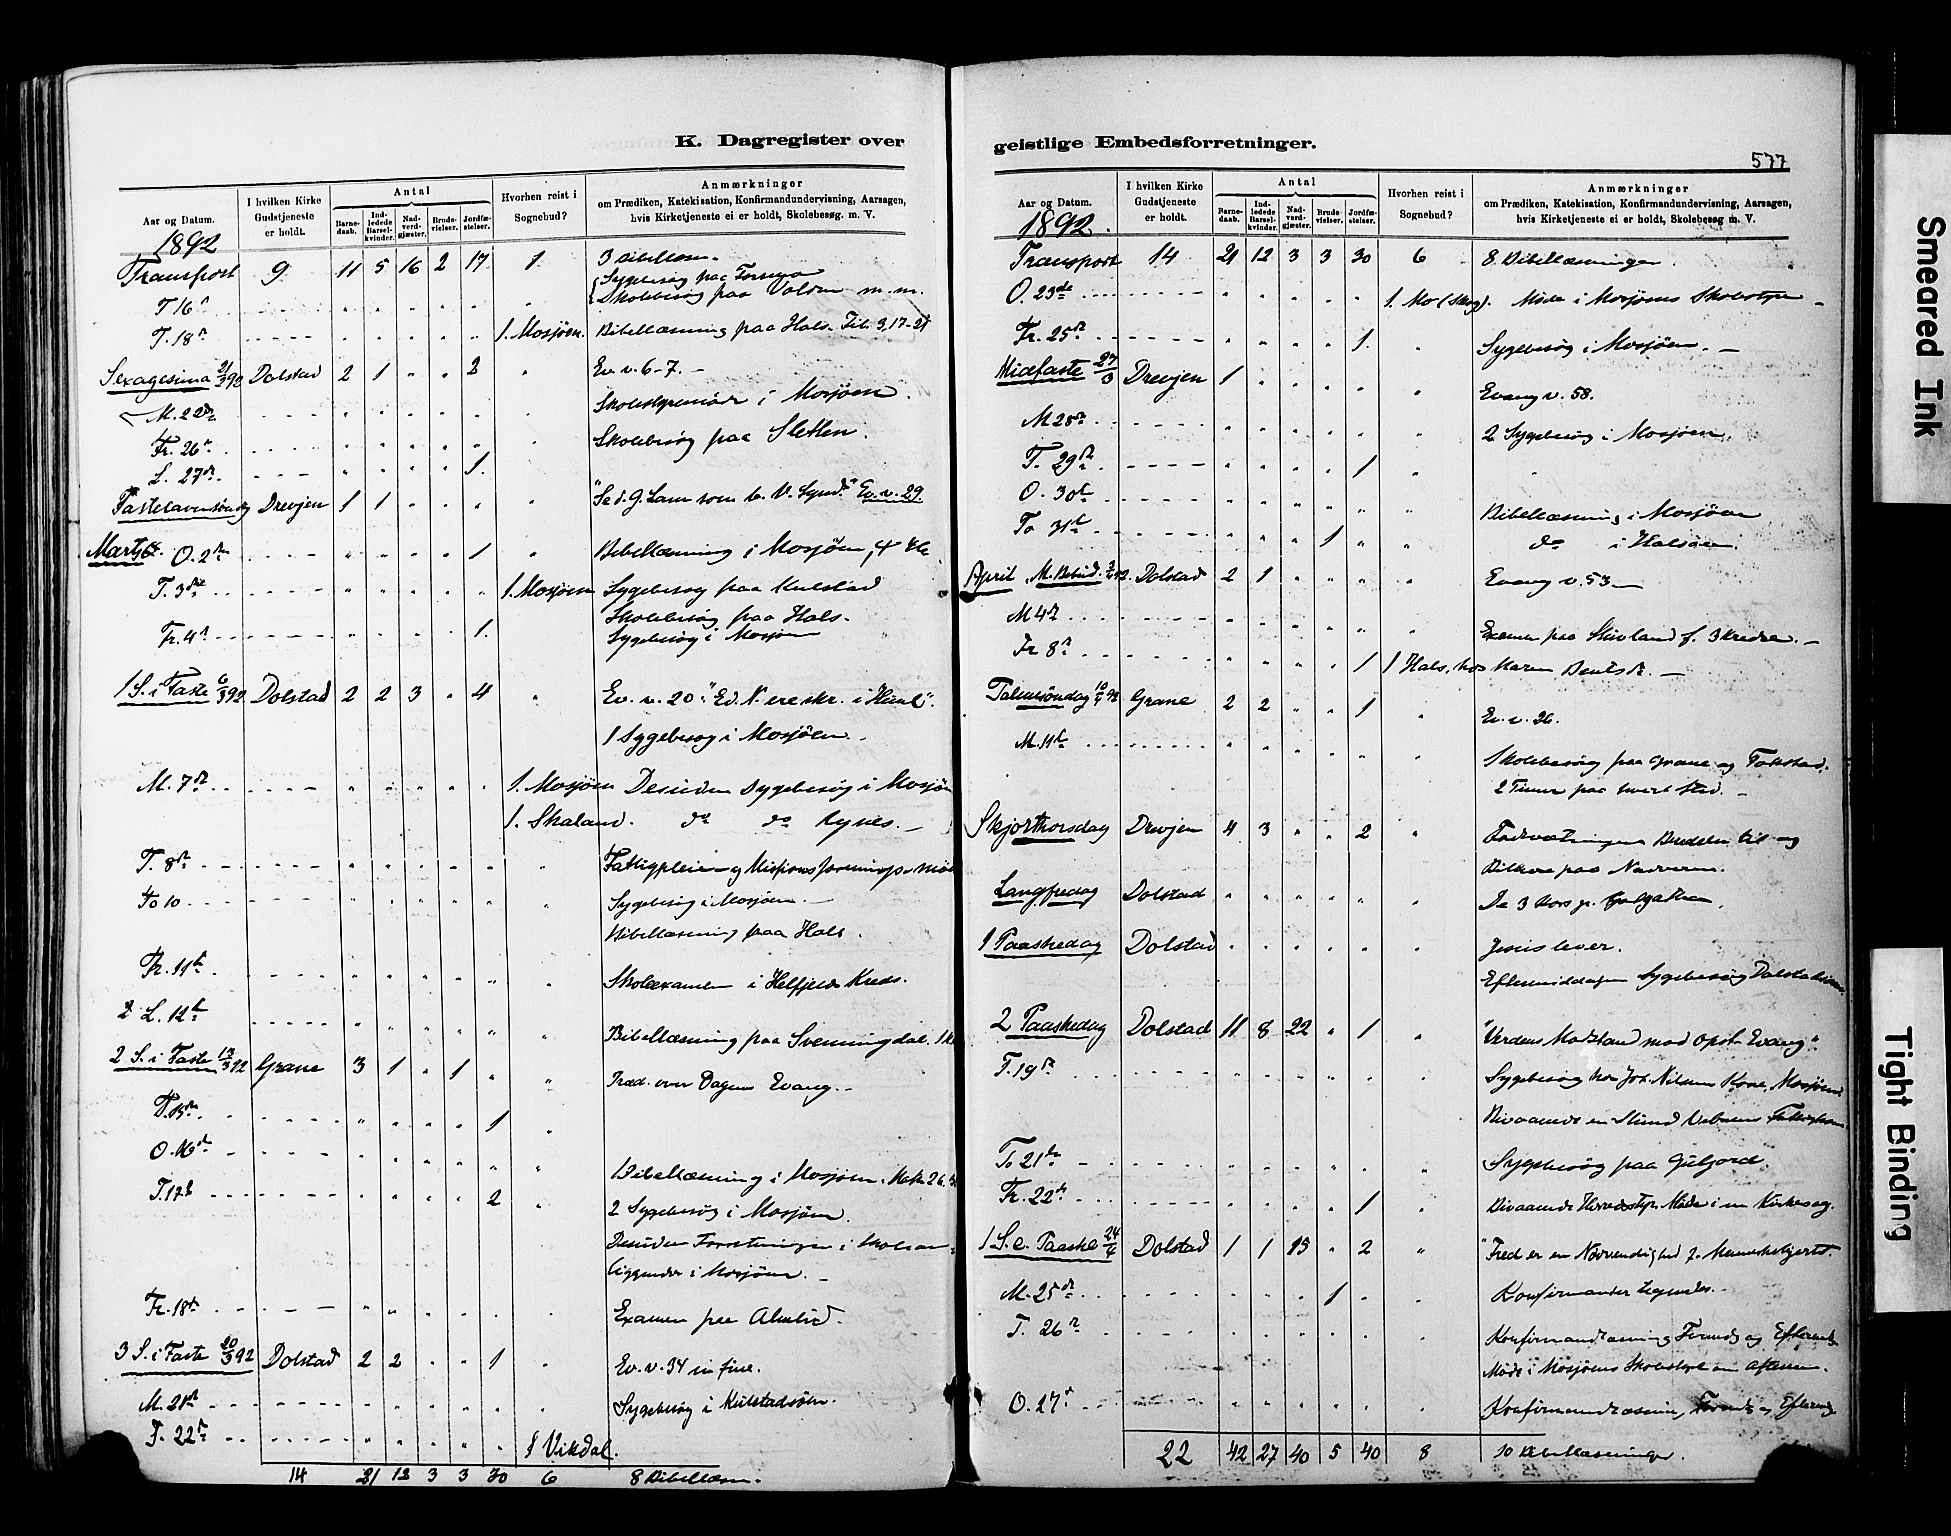 K. Dagregister over
Aar og Datum.
I hvilken Kirke Gudstjeneste er holdt.
Antal
Barnedaab.
Indledede Barselkvinder.
Nadverdgjæster.
Brudevielser.
Jordfæstelser.
Hvorhen reist i Sognebud?
Anmærkninger
om Prædiken, Katekisation, Konfirmandundervisning, Aarsagen,
hvis Kirketjeneste ei er holdt, Skolebesøg. m. V.
1892
Transport 9 11 5 16 2 17 1 3 Bibellæsn.
Sygebesøg paa
T 16 Skolebesøg paa m. m.
T. 18 1. Mosjøen. Bibellæsning paa Hals. 3,17-21
Sexagesima 21/392 Dolstad 2 1 2 Ev. v. 6-7. –
M. 22 Skolestyremøde i Mosjøen.
Fr. 26 Skolebesøg paa Sletten.
L. 27 1.
Fastelavnsöndag Drevjen 1 1 "Se d. G. Lam som b. V. Synd." Ev. v. 29.
Marts O. 2 1 Bibellæsning i Mosjøen,
T. 3die 1. Mosjøen Sygebesøg paa Kulstad
Skolebesøg paa Hals.
Fr. 4 1. Sygebesøg i Mosjøen
1 S. i Faste 6/392 Dolstad 2 2 3 4 Ev. v. 20. "Ed. N. ere skr. i Himl".
1 Sygebesøg i Mosjöen.
M. 7 1. Mosjøen Desuden Sygebesøg i Mosjøen
1. Skaland. do do
T. 8 Fattigpleie og Missionsforenings-møde
To 10 Sygebesøg i Mosjøen.
Bibellæsning paa Hals.
Fr. 11 Skoleexamen i Kreds.
L. 12 Bibellæsning paa Svenningdal.
2 S. i Faste 13/392 Grane 3 1 1 Præd. over Dagens Evang.
T. 15 1
O. 16 Bibellæsning i Mosjøen.
T. 17 2 2 Sygebesøg i Mosjøen.
Desuden Forretninger i Skolean-
liggender i Mosjøen.
Fr. 18 Examen paa
3 S. i Faste 20/392 Dolstad 2 2 1 Ev. v. 34 in fine.
M. 21 Sygebesøg i Kulstadsöen.
T. 22 1 Vikdal.
14 21 12 3 3 30 6 8 Bibellæsn.
geistlige Embedsforretninger.
577
Aar og Datum.
I hvilken Kirke Gudstjeneste er holdt.
Antal
Barnedaab.
Indledede Barselkvinder.
Nadverdgjæster.
Brudevielser.
Jordfæstelser.
Hvorhen reist i Sognebud?
Anmærkninger
om Prædiken, Katekisation, Konfirmandundervisning, Aarsagen,
hvis Kirketjeneste ei er holdt, Skolebesøg m. V.
1892.
Transport 14 21 12 3 3 30 6 8 Bibellæsninger.
O. 23de 1. Mo (Skog). Møde i Mosjøens Skolestyre
Fr. 25 1. Sygebesøg i Mosjøen.
Midfaste 27/3 Drevjen 1 Evang v. 58.
M 28 2 Sygebesøg i Mosjøen.
T. 29 1
O. 30 Bibellæsning i Mosjøen
To 31 1 do i Halsöen.
April M. Bebud. 3/492. Dolstad 2 1 Evang v. 53
M 4 Examen paa f. 3 Kredse.
Fr 8 1 1 Hals, hos Karen
Palmesöndag 10/492 Grane 2 2 1 Ev. v. 26.
M. 11 Skolebesøg paa Grane og
2 Timer paa hvert Sted.
Skjærthorsdag Drevjen 4 3 2 Fodvætningen Budden til og
paa Nadveren.
Langfredag Dolstad De 3 Kors p. Golgatha.
1 Paaskedag Dolstad Jesus lever.
Eftermiddagen Sygebesøg
2 Paaskedag Dolstad 11 8 22 1 "Verdens Modstand mod Opst. Evang".
T. 19 Sygebesøg hos Joh. Nilsens Kone, Mosjøen.
Bivaanede en Stund
To 21 Sygebesøg paa
Fr. 22 1 Bivaanede Herredsstyr. Møde i en Kirkesag.
1 S. e. Paaske 24/4 Dolstad 1 1 15 2 "Fred er en Nødvendighed f. Menneskehjertet.
M. 25 1 Konfirmander
T. 26 Konfirmandlæsning Formd. og Eftermd.
Møde i Mosjøens Skolestyre om Aftenen.
O. 27 Konfirmandlæsning Formd. og Eftermd.
22 42 27 40 5 40 8 10 Bibellæsninger
Smeared Ink
Tight Binding